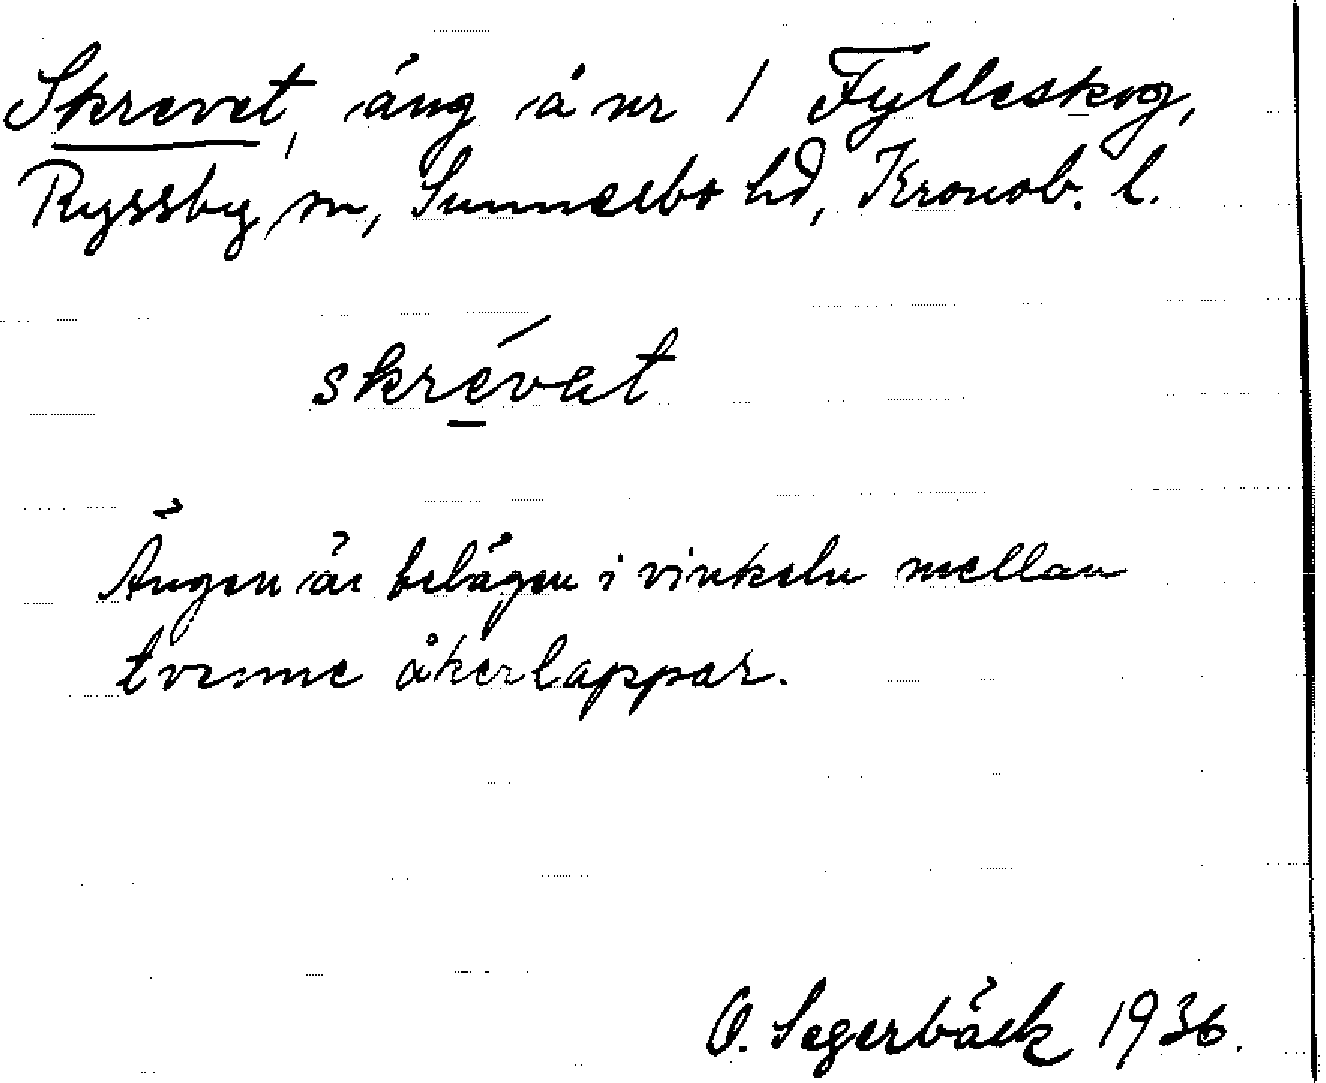 Skrevet, äng å nr 1 Fylleskog,
Ryssby sn, Sunnerbo hd, Kronob. l.
skrévat
Ängen är belägen i vinkeln mellan
tvenne åkerlappar.
O. Segerbäck 1936.